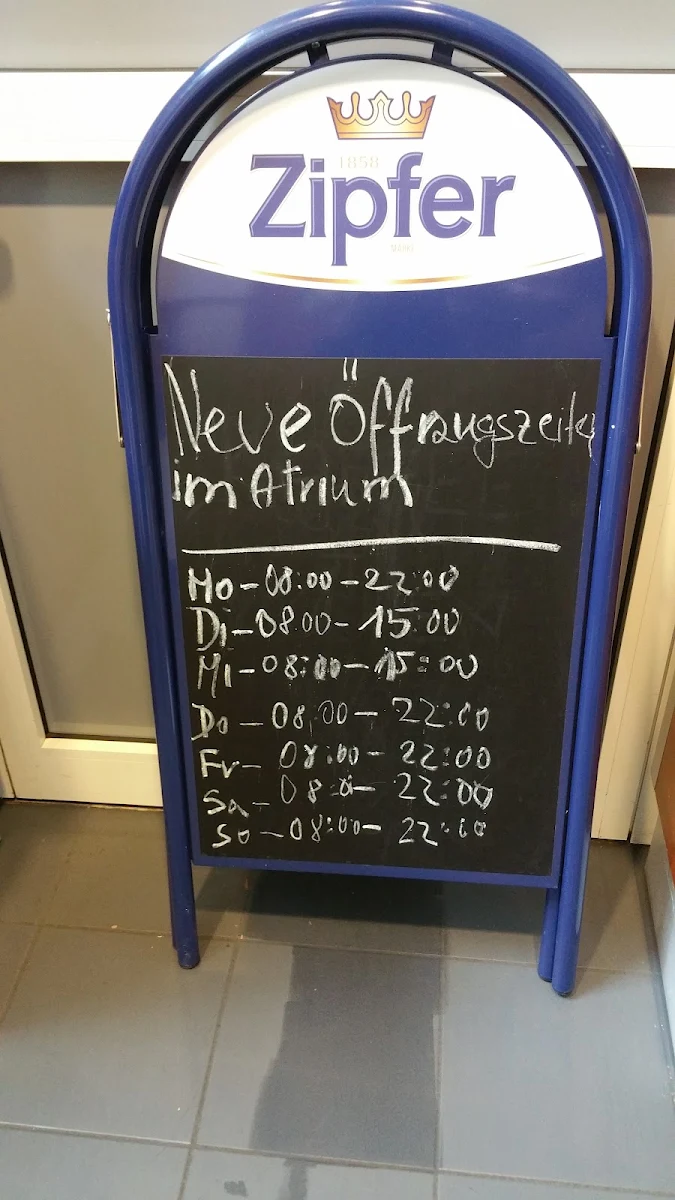 1858
Zipfer
Neve Öffnungszeiten
im Atrium
Mo - 08:00 - 22:00
Di - 08:00 - 15:00
Mi - 08:00 - 15:00
Do - 08:00 - 22:00
Fr - 08:00 - 22:00
Sa - 08:00 - 22:00
So - 08:00 - 22:00